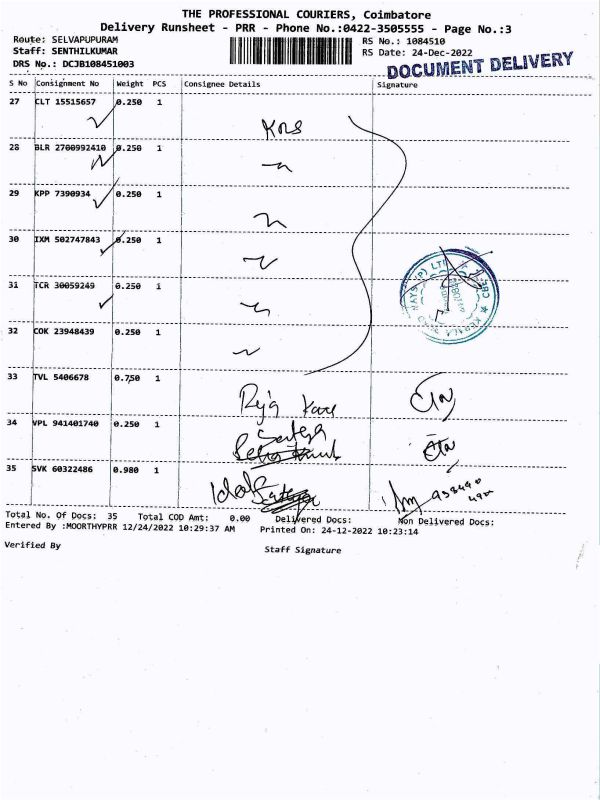 THE PROFESSIONAL COURIERS, Coimbatore
Delivery Runsheet - PRR - Phone No.:0422-3505555 - Page No.:3
Route: SELVAPUPURAM
RS No.: 1084510
Staff: SENTHILKUMAR
RS Date: 24-Dec-2022
DRS No.: DCJB108451003
DOCUMENT DELIVERY
S No Consignment No Weight PCS Consignee Details Signature
27 CLT 15515657 0.250 1
KRS
28 BLR 2700992410 0.250 1
29 KPP 7390934 0.250 1
30 IXM 502747843 0.250 1
31 TCR 30059249 0.250 1
32 COK 23948439 0.250 1
33 TVL 5406678 0.750 1
34 VPL 941401740 0.250 1
35 SVK 60322486 0.980 1
Total No. Of Docs: 35 Total COD Amt: 0.00 Delivered Docs: Non Delivered Docs:
Entered By :MOORTHYPRR 12/24/2022 10:29:37 AM Printed On: 24-12-2022 10:23:14
Verified By
Staff Signature